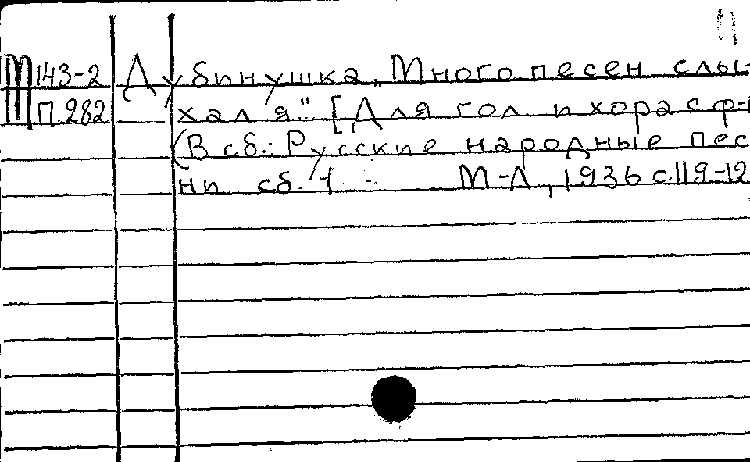 М 143-2 Дубинушка „Много песен слы-
П 282 хал я" [Для гол. и хора с ф-
(В сб.: Русские народные пес
ни сб. 1 М-Л, 1936 с.119-12